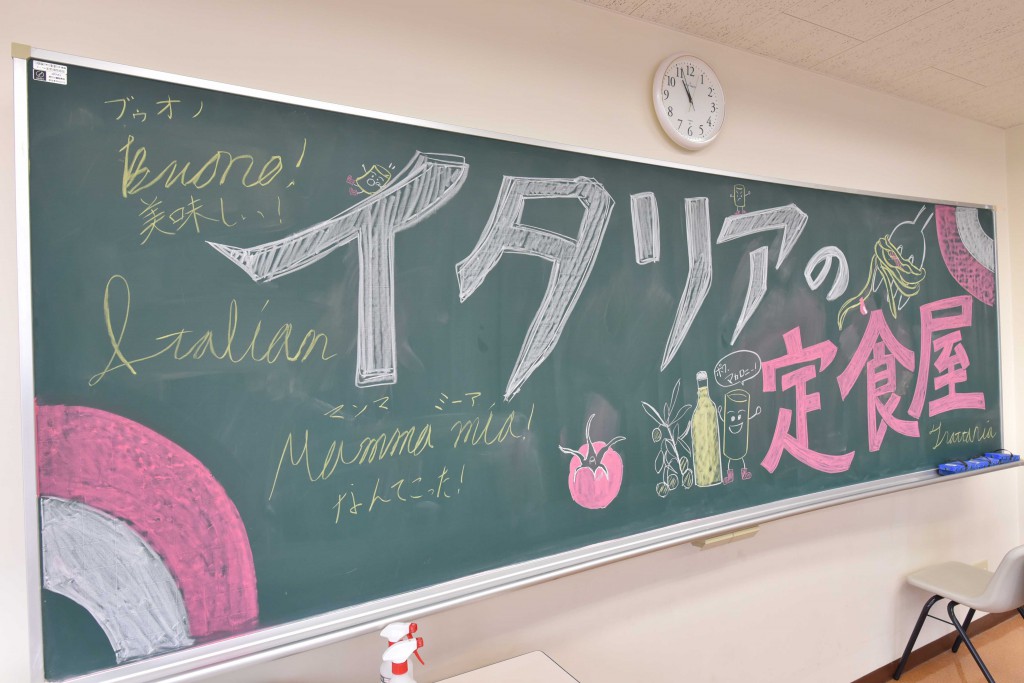 ブゥオノ
Buono!
美味しい!
Italian
イタリアの
定食屋
Trattoria
マンマ ミーア
Mamma mia!
なんてこった!
ボク、
マカロニー!
12
1
2
3
4
5
6
7
8
9
10
11